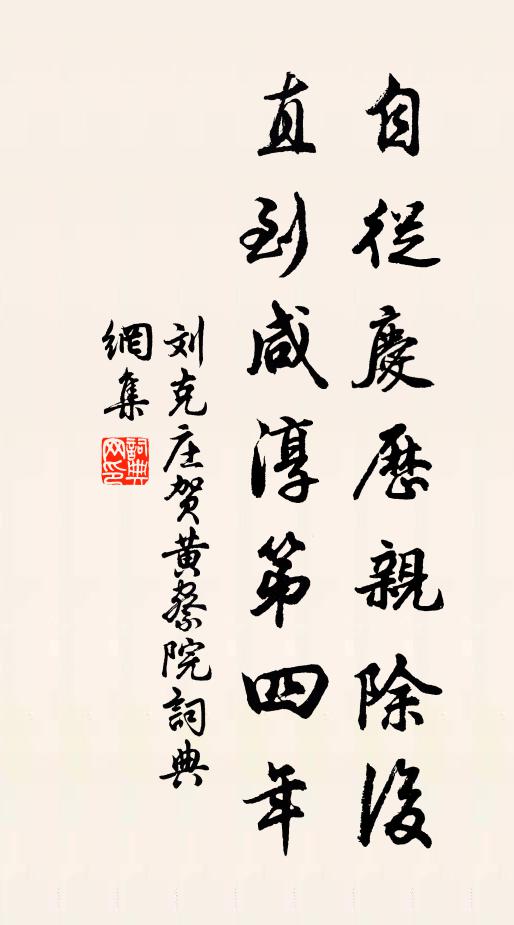 自從慶歷親除後
直到咸淳第四年
刘克庄贺黄察院詞典
網集
詞典
网印